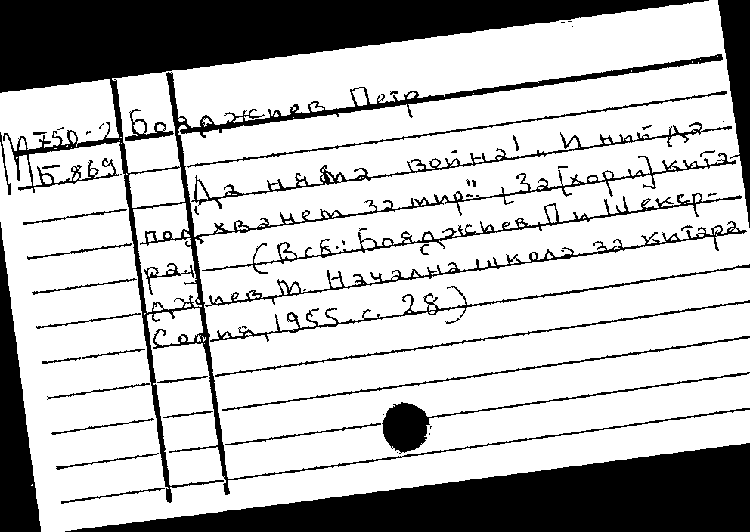 М750-2 Бояджиев, Петр
Б.869
Да няма война! „И ний да
подхванем за мир“. [За [хор и] кита-
ра] (Всб.: Бояджиев, П и Шекер-
джиев, М. Начална школа за китара
София, 1955. с. 28)